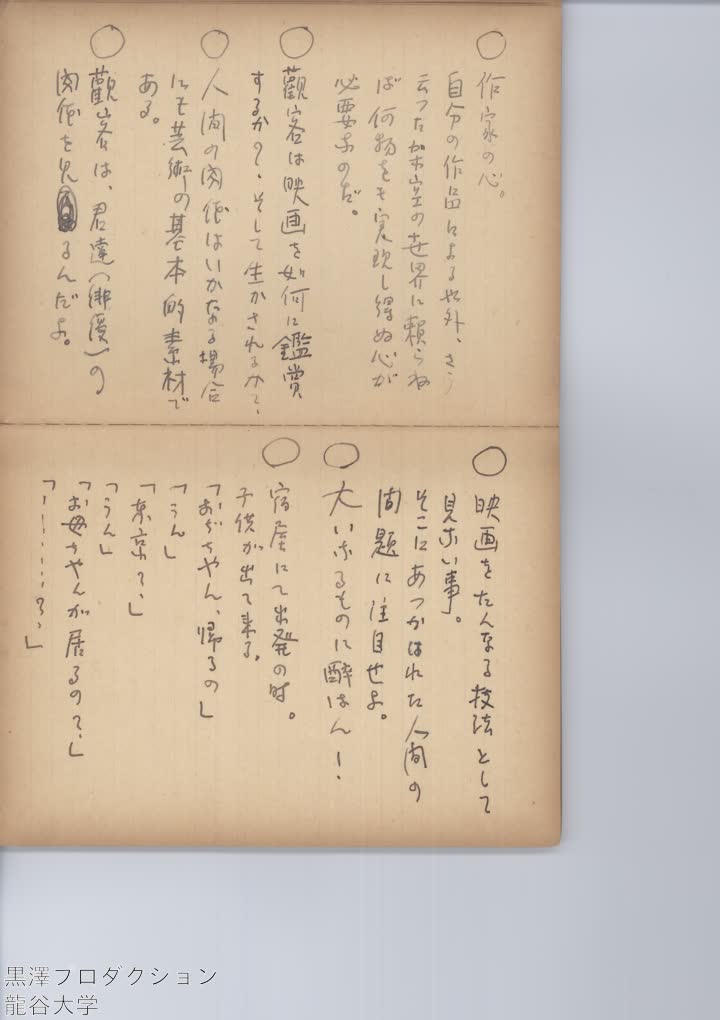 ○ 作家の心。
自分の作品による以外、さう
云つた架空の世界に頼らね
ば何物をも実現し得ぬ心が
必要なのだ。
○ 観客は映画を如何に鑑賞
するか?、そして生かされるか?、
○ 人間の肉体はいかなる場合
にも芸術の基本的素材で
ある。
○ 観客は、君達(俳優)の
肉体を見るんだよ。
○ 映画をたんなる技法として
見ない事。
そこにあつかはれた人間の
問題に注目せよ。
○ 大いなるものに酔はん!
○ 宿屋にて出発の時。
子供が出て来る。
「おぢちやん、帰るの」
「うん」
「東京?、」
「うん」
「お母ちやんが居るの?、」
「−−……?、」
黒澤プロダクション
龍谷大学